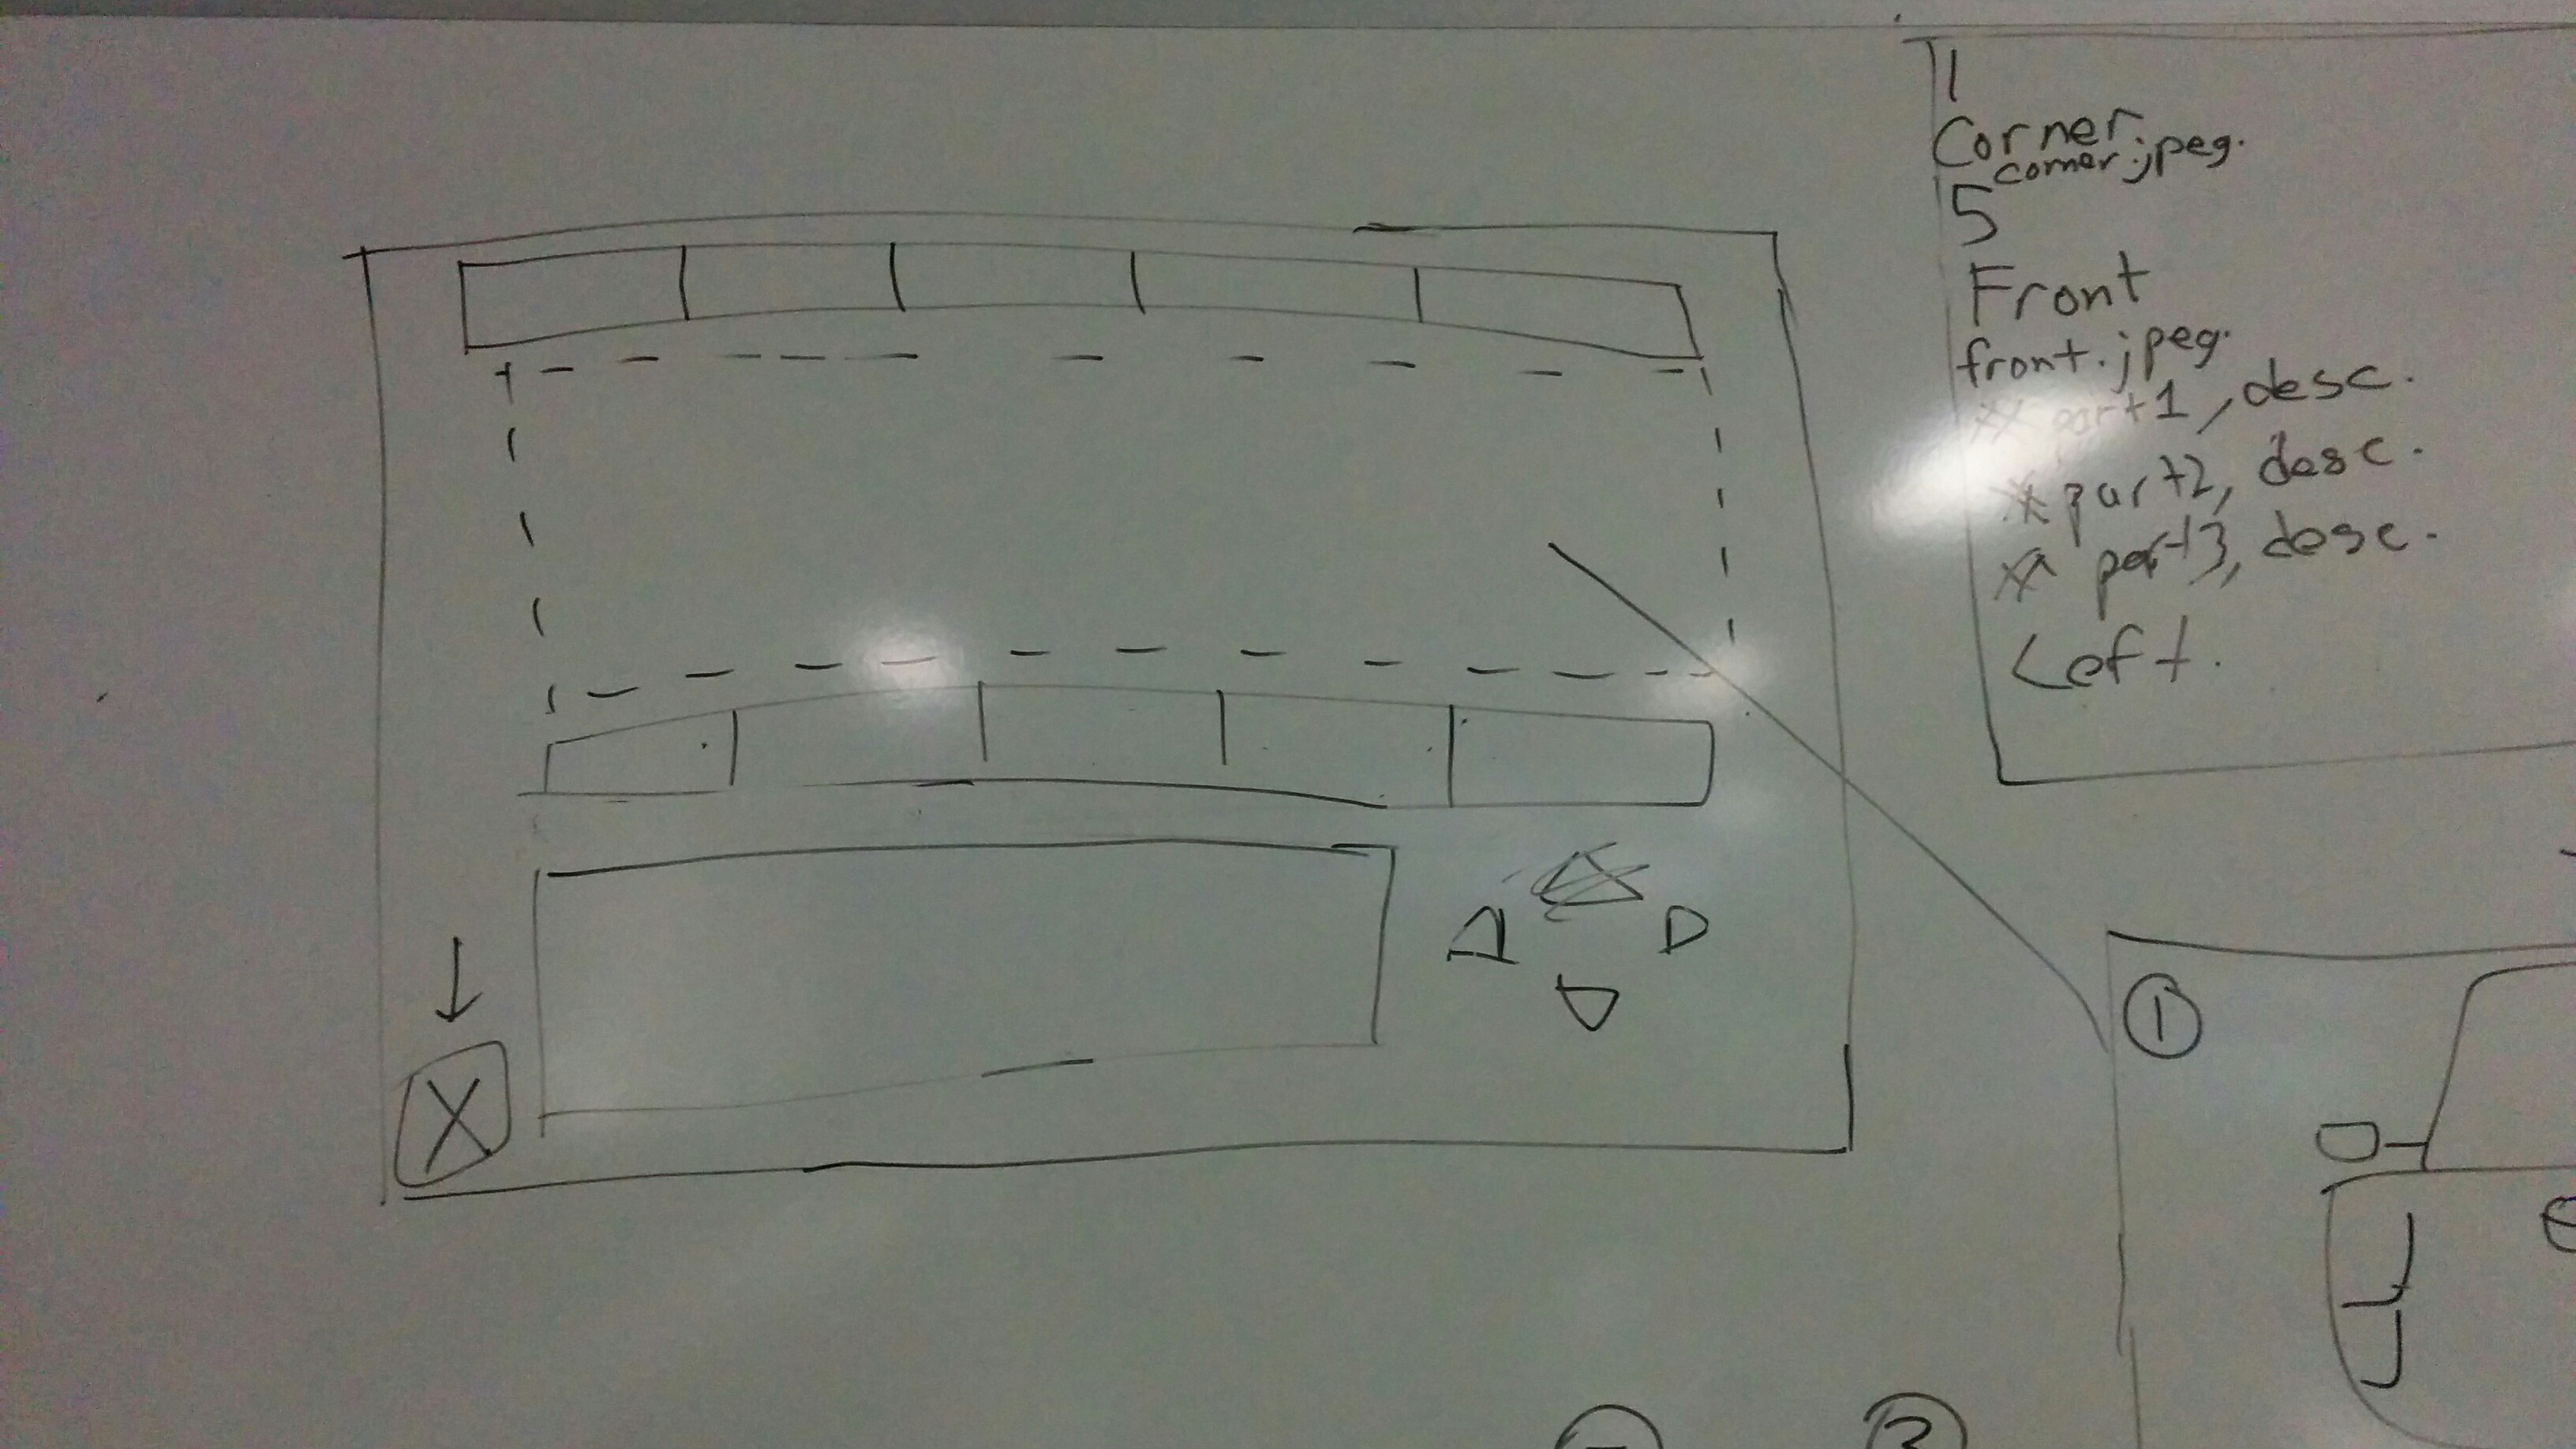 1
Corner
corner.jpeg.
5
Front
front.jpeg.
** part1, desc.
** part2, desc.
** part3, desc.
Left.
X
1
3